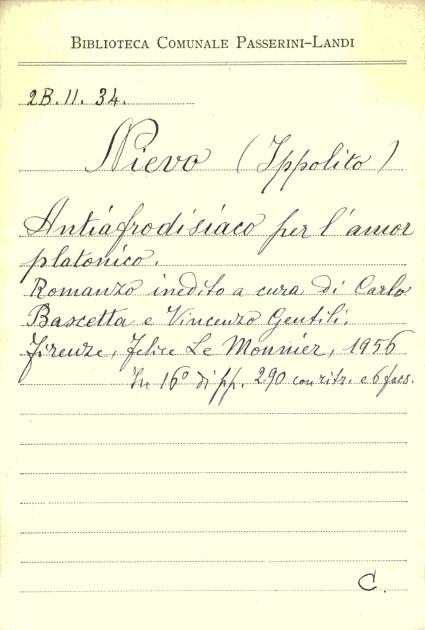 BIBLIOTECA COMUNALE PASSERINI-LANDI
2B.11.34.
Nievo (Ippolito)
Antiafrodisiaco per l'amor
platonico.
Romanzo inedito a cura di Carlo
Bascetta e Vincenzo Gentili.
Firenze, Felice Le Monnier, 1956
In 16° di pp. 290 con ritr. e 6 facs.
C.